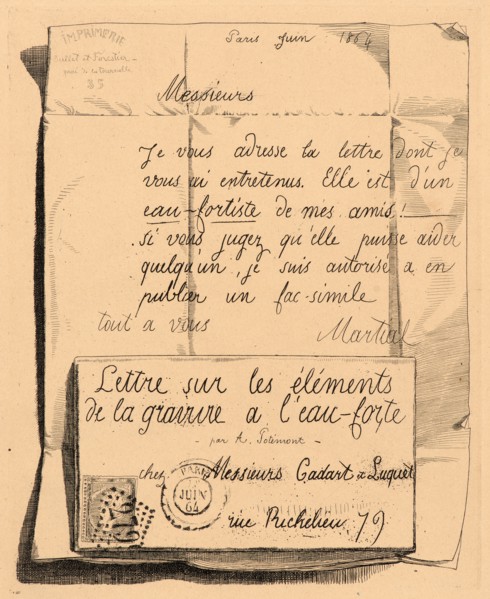 IMPRIMERIE
quai de la Tournelle
35
Paris Juin 1864
Messieurs
Je vous adresse la lettre dont je
vous ai entretenus. Elle est d'un
eau-fortiste de mes amis!
Si vous jugez qu'elle puisse aider
quelqu'un, je suis autorisé a en
publier un fac-simile
tout a vous Martial
Lettre sur les éléments
de la gravure a l'eau-forte
- par A. Potémont -
chez Messieurs Cadart & Luquet
PARIS
JUIN
64
rue Richelieu, 79